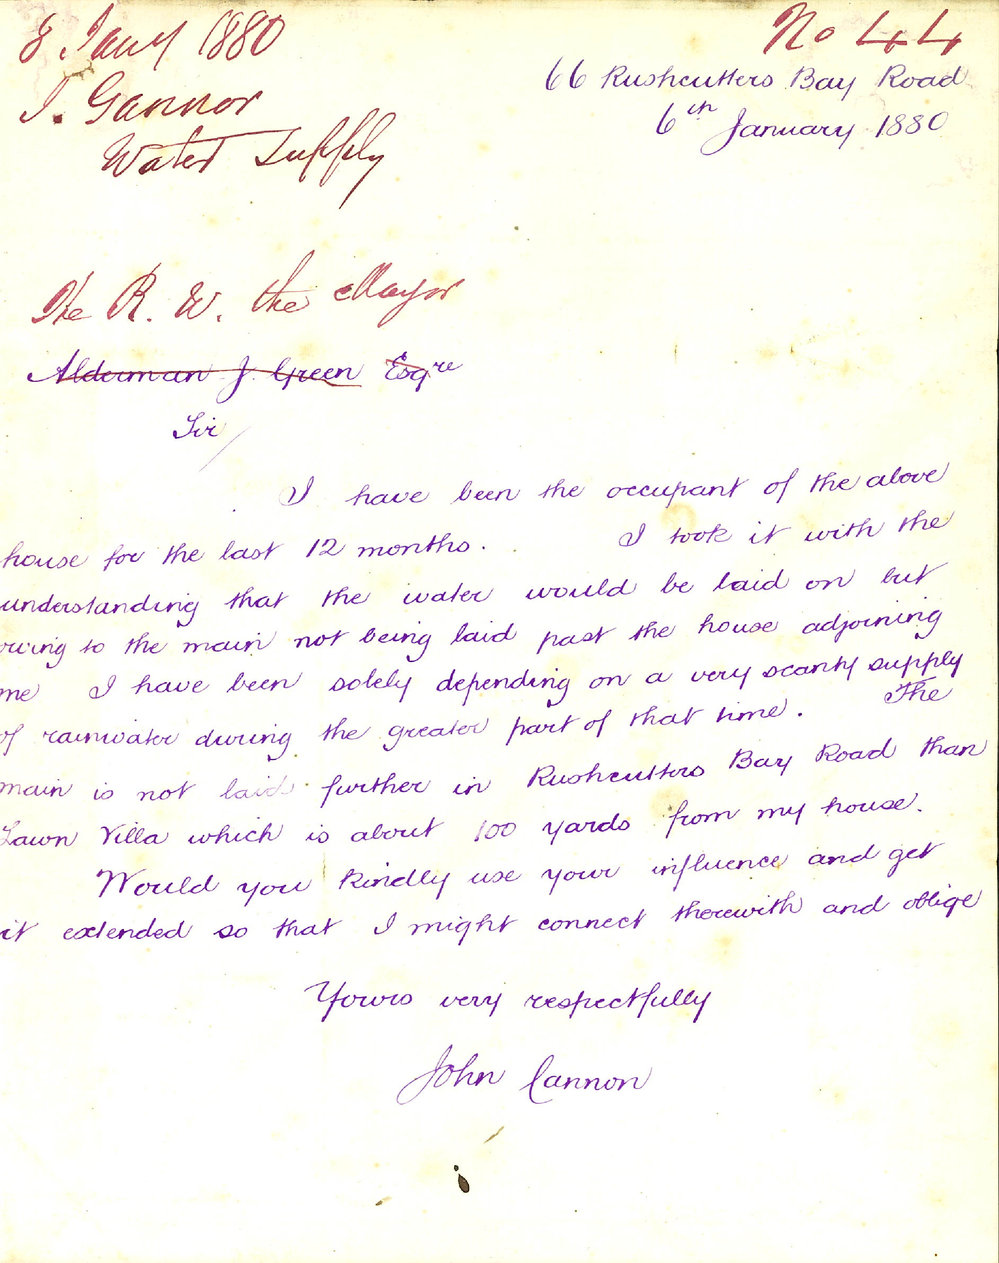 8 Jany 1880
No 44
J. Gannon
Water Supply
66 Rushcutters Bay Road
6th January 1880
The R. W. the Mayor
Alderman J. Green Esqre
Sir
I have been the occupant of the above
house for the last 12 months. I took it with the
understanding that the water would be laid on but
owing to the main not being laid past the house adjoining
me I have been solely depending on a very scanty supply
of rainwater during the greater part of that time. The
main is not laid further in Rushcutters Bay Road than
Lawn Villa which is about 100 yards from my house.
Would you kindly use your influence and get
it extended so that I might connect therewith and oblige
Yours very respectfully
John Cannon